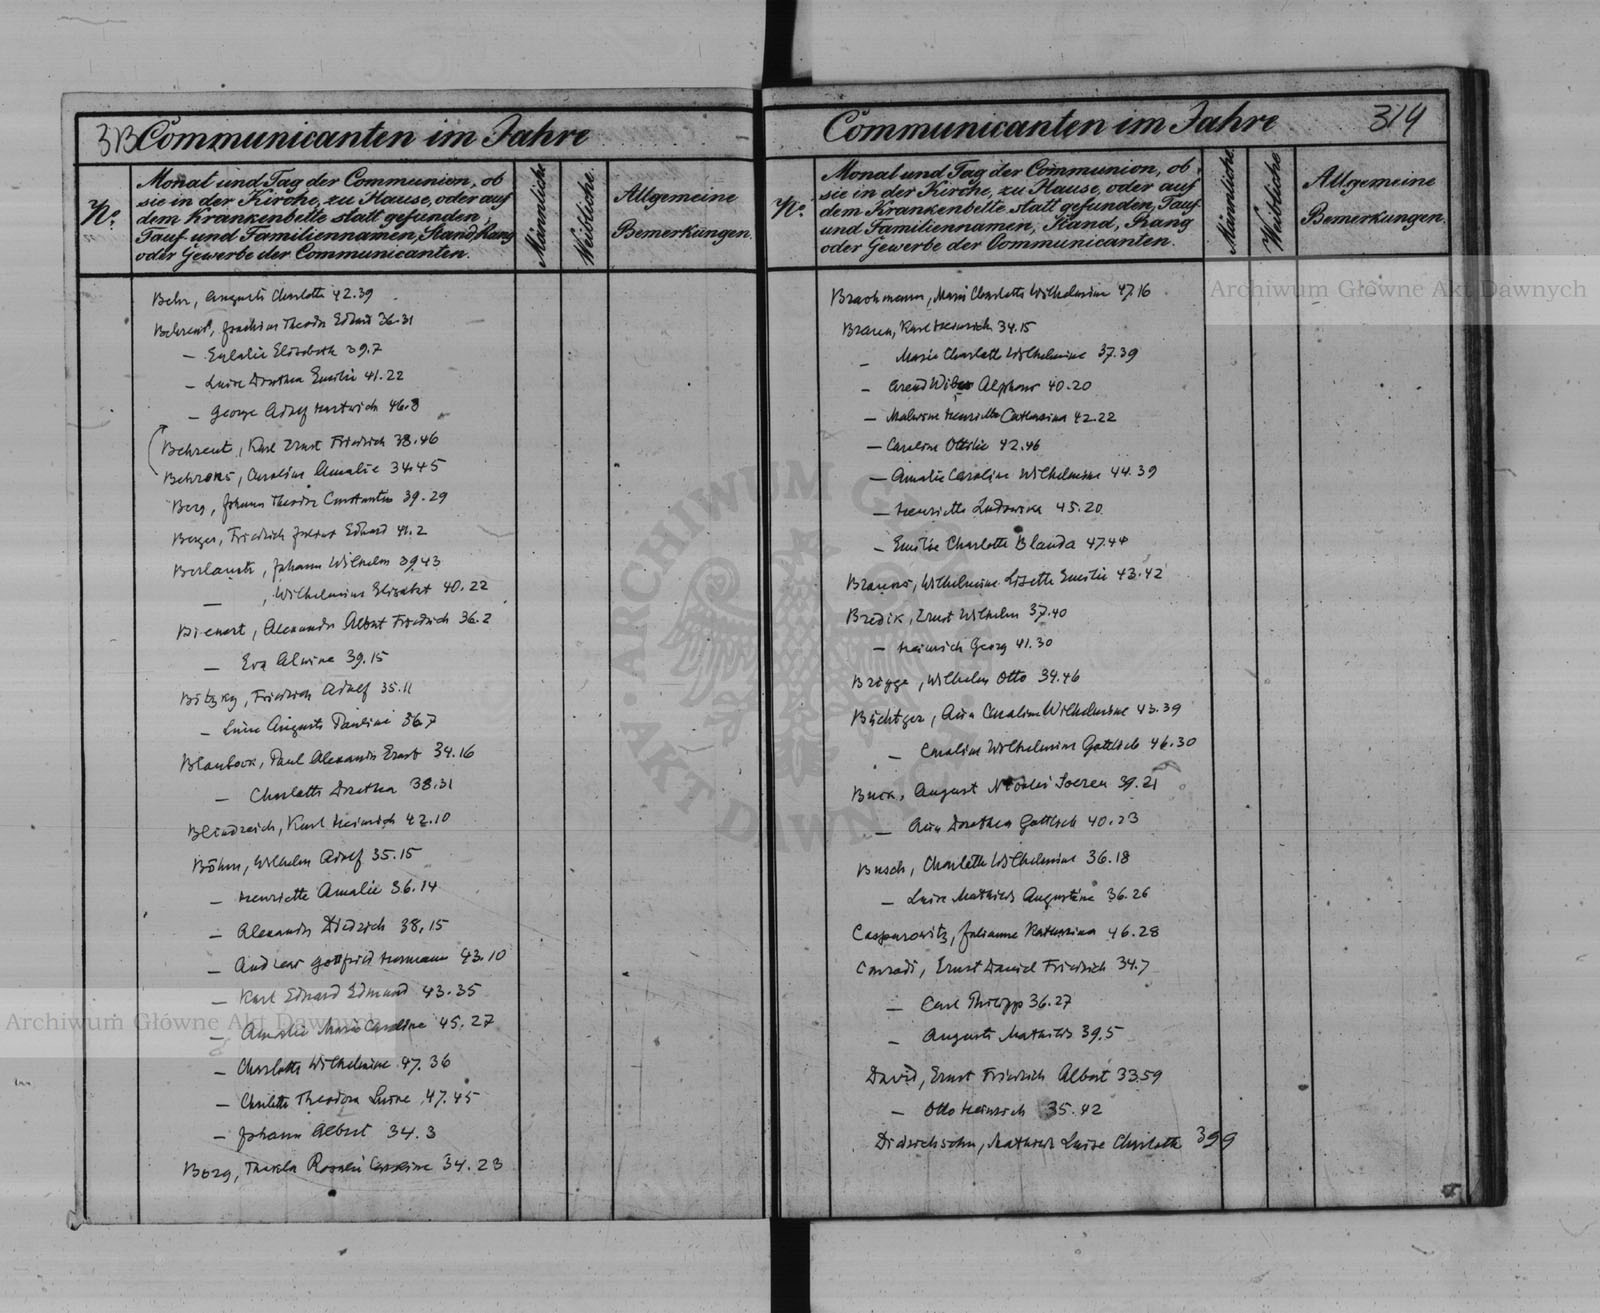 313 Communicanten im Jahre
No.
Monat und Tag der Communion, ob
sie in der Kirche, zu Hause, oder auf
dem Krankenbette statt gefunden,
Tauf und Familiennamen, Stand, Rang
oder Gewerbe der Communicanten.
Männliche.
Weibliche.
Allgemeine
Bemerkungen.
Behr, Auguste Charlotte 42.39
Behrent, Joachim Theodor Eduard 36.31
— Eulalie Elisabeth 39.7
— Luise Dorothea Emilie 41.22
— George Adolf Hartwich 46.8
Behrent, Karl Ernst Friedrich 38.46
Behrens, Caroline Amalie 34.45
Berg, Johann Theodor Constantin 39.29
Berger, Friedrich Eduard 41.2
Johann Wilhelm 39.43
— , Wilhelmine Elisabet 40.22
Bienert, Alexander Albert Friedrich 36.2
— Eva Alwine 39.15
Bitzky, Friedrich Adolf 35.11
— Luise Auguste Pauline 36.7
Paul Alexander Ernst 34.16
— Charlotte Dorothea 38.31
Blindreich, Karl Heinrich 42.10
Böhm, Wilhelm Adolf 35.15
— Henriette Amalie 36.14
— Alexander Diedrich 38.15
— Andreas Gottfried Hermann 43.10
— Karl Eduard Edmund 43.35
— Amalie Marie Caroline 45.27
— Charlotte Wilhelmine 47.36
— Charlotte Theodora Luise 47.45
— Johann Albert 34.3
Borg, Thekla Rosalie Caroline 34.23
Communicanten im Jahre 314
No.
Monat und Tag der Communion, ob
sie in der Kirche, zu Hause, oder auf
dem Krankenbette statt gefunden, Tauf
und Familiennamen, Stand, Rang
oder Gewerbe der Communicanten.
Männliche.
Weibliche
Allgemeine
Bemerkungen.
Brachmann, Marie Charlotte Wilhelmine 47.16
Braun, Karl Heinrich 34.15
— Marie Charlotte Wilhelmine 37.39
— Arend Alphons 40.20
— Malwine Henriette Catharina 42.22
— Caroline Ottilie 42.46
— Amalie Caroline Wilhelmine 44.39
— Henriette Ludowika 45.20
— Emilie Charlotte Blanda 47.44
Brauns, Wilhelmine Lisette Emilie 43.42
Bredik, Ernst Wilhelm 37.40
— Heinrich Georg 41.30
Brigge, Wilhelm Otto 34.46
Büchtger, Caroline Wilhelmine 43.39
— Caroline Wilhelmine Gottlieb 46.30
Buck, August Nicolai 39.21
— Dorothea Gottlieb 40.23
Busch, Charlotte Wilhelmine 36.18
— Luise Mathilde Augustine 36.26
Casparowitz, Julianne Katharina 46.28
Conradi, Ernst Daniel Friedrich 34.7
— Carl Philipp 36.27
— Auguste Mathilde 39.5
David, Ernst Friedrich Albert 33.59
— Otto Heinrich 35.42
Didrichsohn, Mathilde Luise Charlotte 39.9
Archiwum Główne Akt Dawnych
Archiwum Główne Akt Dawnych
ARCHIWUM GŁÓWNE AKT DAWNYCH